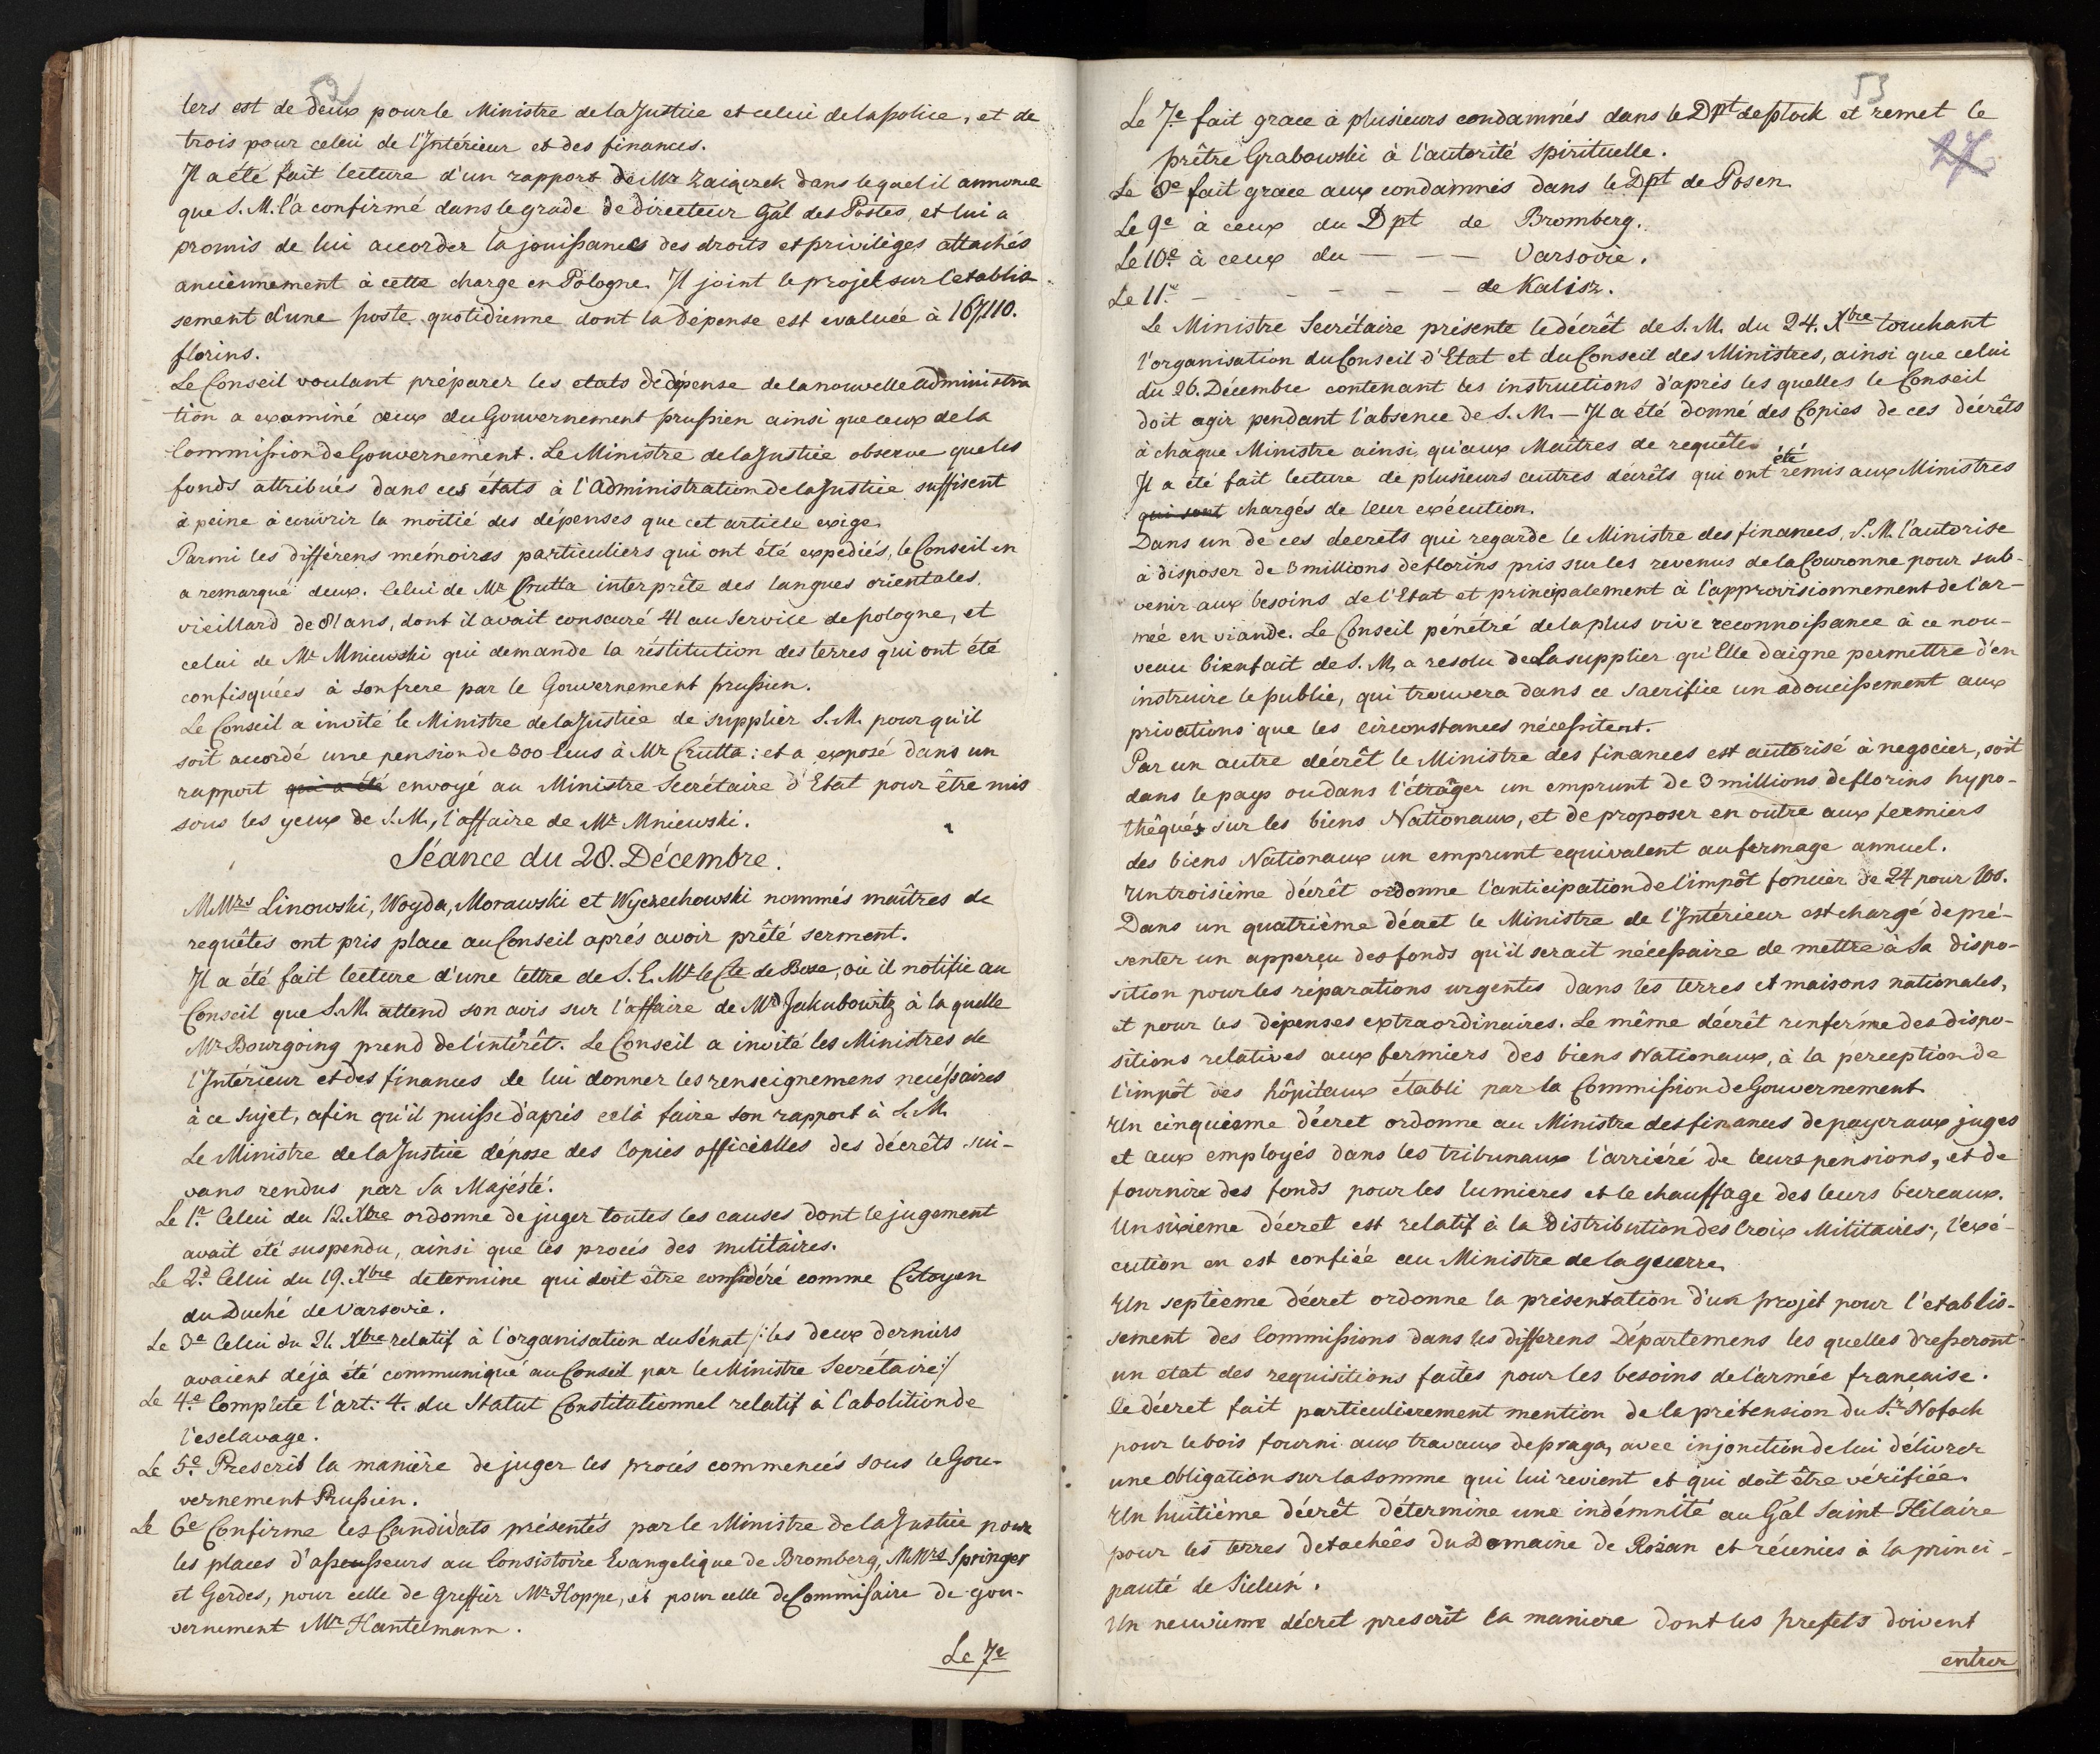 52
lers est de deux pour le Ministre de la Justice et celui de la police, et de
trois pour celui de l'Intérieur et des finances.
Il a été fait lecture d'un rapport de Mr Zaigczek dans lequel il annonce
que S. M. l'a confirmé dans le grade de directeur Gál des Postes, et lui a
promis de lui accorder la jouissances des droits et privilèges attachés
anciennement à cette charge en Pologne. Il joint le projet sur l'établis-
sement d'une poste quotidienne dont la dépense est evaluée à 167,110.
florins.
Le Conseil voulant préparer les etats de dépense de la nouvelle administra
tion a examiné ceux du Gouvernement prussien ainsi que ceux de la
Commission de Gouvernement. Le Ministre de la Justice observe que les
fonds attribués dans ces états à l'administration de la Justice suffisent
à peine à couvrir la moitié des dépenses que cet article exige.
Parmi les différens mémoires particuliers qui ont été expediés, le Conseil en
a remarqué deux. Celui de Mr Crutta interprête des langues orientales,
vieillard de 81 ans, dont il avait consacré 41 au service de pologne, et
celui de Mr Mniewski qui demande la réstitution des terres qui ont été
confisquées à son frere par le Gouvernement prussien.
Le Conseil a invité le Ministre de la Justice de supplier S. M. pour qu'il
soit accordé une pension de 300 écus à Mr Crutta: et a exposé dans un
rapport qui a été envoyé au Ministre Secrétaire d'Etat pour être mis
sous les yeux de S. M., l'affaire de Mr Mniewski.
Séance du 28. Décembre.
M.Mrs Linowski, Woyda, Morawski et Wyczechowski nommés maîtres de
requêtes ont pris place au Conseil aprés avoir prêté serment.
Il a été fait lecture d'une lettre de S. E. Mr le Cte de Bose, où il notifie au
Conseil que S. M. attend son avis sur l'affaire de Mr Jakubowitz à la quelle
Mr Bourgoing prend de l'intérêt. Le Conseil a invité les Ministres de
l'Intérieur et des finances de lui donner les renseignemens necéssaires
à ce sujet, afin qu'il puisse d'aprés celà faire son rapport à S. M.
Le Ministre de la Justice dépose des Copies officielles des décrêts sui-
vans rendus par Sa Majésté.
Le 1r Celui du 12. Xbre ordonne de juger toutes les causes dont le jugement
avait été suspendu, ainsi que les procés des militaires.
Le 2d Celui du 19. Xbre determine qui doit être considéré comme Citoyen
du Duché de Varsovie.
Le 3e Celui du 21. Xbre relatif à l'organisation du Sénat /: les deux derniers
avaient déja été communiqué au Conseil par le Ministre Secrétaire :/
Le 4.e Complete l'art: 4. du Statut Constitutionnel relatif à l'abolition de
l'esclavage.
Le 5.e Prescrit la manière de juger les procés commencés sous le Gou-
vernement Prussien.
Le 6e Confirme les Candidats présentés par le Ministre de la Justice pour
les places d'assesseurs au Consistoire Evangelique de Bromberg, M.Mrs Springer
et Gerdes, pour celle de Greffier Mr Hoppe, et pour celle de Commissaire de gou-
vernement Mr Hantelmann.
Le 7e
53
27
Le 7.e fait grace à plusieurs condamnés dans le Dpt de plock et remet le
prêtre Grabowski à l'autorité spirituelle.
Le 8e fait grace aux condamnés dans le Dpt de Posen
Le 9e à ceux du Dpt de Bromberg.
Le 10.e à ceux du — — — Varsovie.
Le 11.e - - - - - - de Kalisz.
Le Ministre Secrétaire présente le décrêt de S. M. du 24. Xbre touchant
l'organisation du Conseil d'Etat et du Conseil des Ministres, ainsi que celui
du 26. Décembre contenant les instructions d'aprés les quelles le Conseil
doit agir pendant l'absence de S. M. — Il a été donné des Copies de ces décrêts
à chaque Ministre ainsi qu'aux Maîtres de requêtes
Il a été fait lecture de plusieurs autres décrêts qui ont été remis aux Ministres
qui sont chargés de leur exécution.
Dans un de ces decrets qui regarde le Ministre des finances, S. M. l'autorise
à disposer de 3 millions de florins pris sur les revenus de la Couronne pour sub-
venir aux besoins de l'Etat et principalement à l'approvisionnement de l'ar-
mée en viande. Le Conseil pénétré de la plus vive reconnoissance à ce nou-
veau bienfait de S. M, a resolu de La supplier qu'Elle daigne permettre d'en
instruire le public, qui trouvera dans ce sacrifice un adoucissement aux
privations que les circonstances nécessitent.
Par un autre décrêt le Ministre des finances est autorisé à negocier, soit
dans le pays ou dans l'étrãger un emprunt de 3 millions de florins hypo-
thêqués sur les biens Nationaux, et de proposer en outre aux fermiers
des biens Nationaux un emprunt equivalent au fermage annuel.
Un troisiéme décrêt ordonne l'anticipation de l'impôt foncier de 24 pour 100.
Dans un quatriéme décret le Ministre de l'Intérieur est chargé de pré-
senter un apperçu des fonds qu'il serait nécessaire de mettre à Sa dispo-
sition pour les réparations urgentes dans les terres et maisons nationales,
et pour les dépenses extraordinaires. Le même décrêt renferme des dispo-
sitions relatives aux fermiers des biens Nationaux, à la perception de
l'impôt des hôpitaux établi par la Commission de Gouvernement
Un cinquieme décret ordonne au Ministre des finances de payer aux juges
et aux employés dans les tribunaux l'arriéré de leurs pensions, et de
fournir des fonds pour les lumieres et le chauffage des leurs bureaux.
Un sixieme décret est relatif à la distribution des Croix Militaires, l'exé-
cution en est confiée au Ministre de la guerre.
Un septieme décret ordonne la présentation d'un projet pour l'etablis-
sement des Commissions dans les differens Départemens les quelles dresseront
un etat des requisitions faites pour les besoins de l'armée française.
Ce décret fait particulierement mention de la prétension du Sr Nofoch
pour le bois fourni aux travaux de praga, avec injonction de lui délivrer
une obligation sur la somme qui lui revient et qui doit être vérifiée.
Un huitiéme décrêt détermine une indémnité au Gál Saint-Hilaire
pour les terres detachées du Domaine de Rozan et réunies à la princi-
pauté de Sielun.
Un neuvieme décret prescrit la maniere dont les prefets doivent
entrer